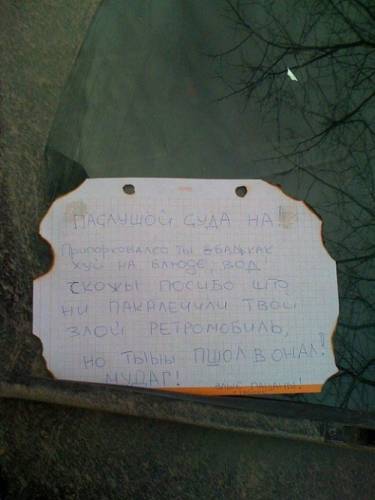 ПАСЛУШОЙ СУДА НА!
Припорковалсо ты ебать как
ХУЙ НА БЛЮДЕ, ВОД!
СКОЖЫ ПОСИБО ШТО
НИ ПАКАЛЕЧИЛИ ТВОЙ
ЗЛОЙ РЕТРОМОБИЛЬ,
НО ТЫЫЫ ПШОЛ В ОНАЛ!
МУДАГ!
ПАЦАНЫ!